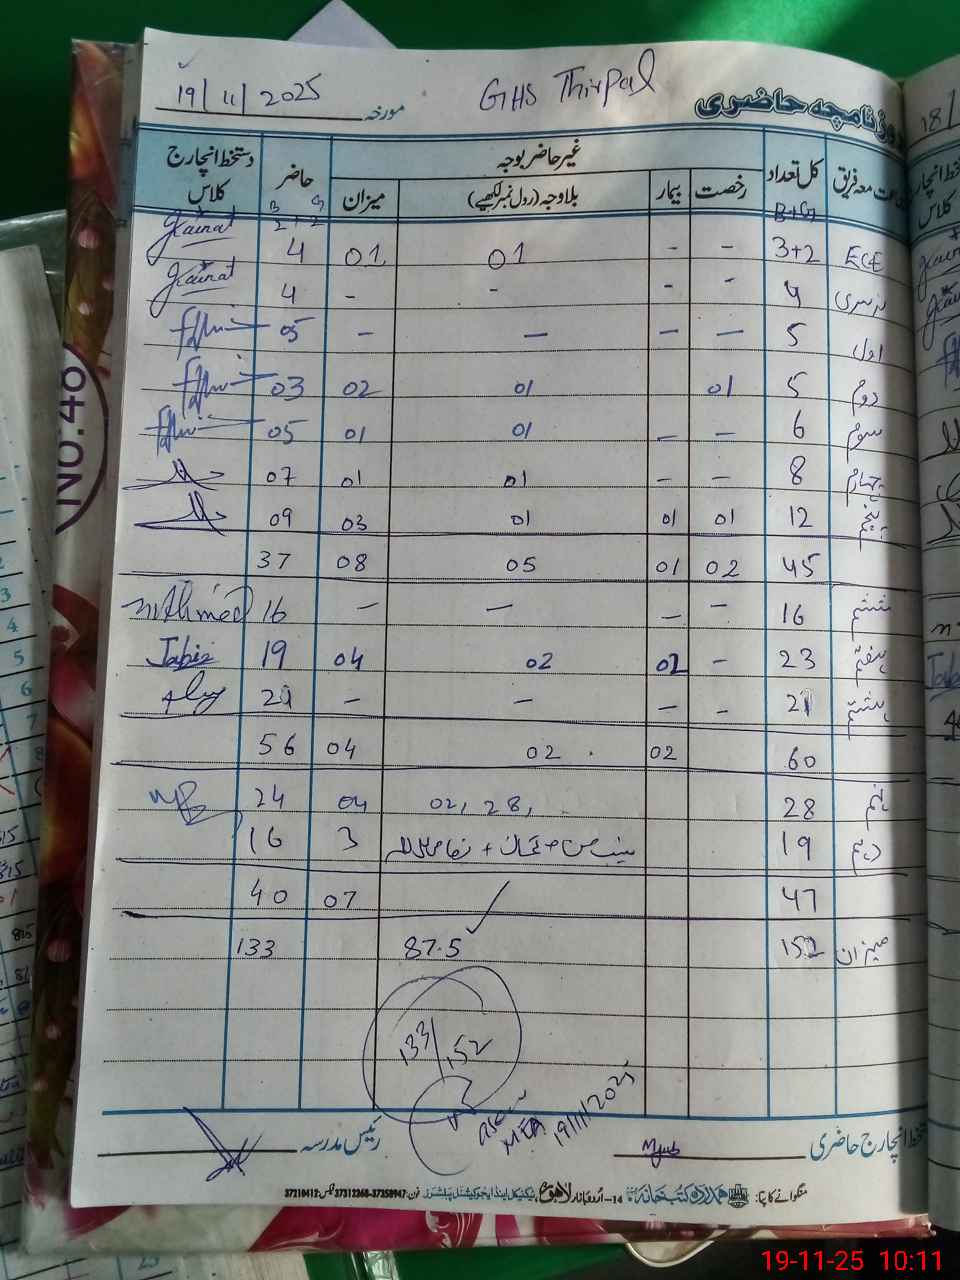 19/11/2025 مورخہ GHS Thirpal روزنامچہ حاضری
جماعت معہ فریق کل تعداد غیر حاضر بوجہ حاضر دستخط انچارج کلاس
رخصت بیمار بلاوجہ (رول نمبر لکھیے) میزان
B+G B G
2+2
ECE 3+2 - - 01 01 4 Kainat
نرسری 4 - - - - 4 Kainat
اول 5 — — — — 05
دوم 5 01 01 02 03
سوم 6 — — 01 01 05
چہارم 8 — — 01 01 07
پنجم 12 01 01 01 03 09
45 02 01 05 08 37
ششم 16 — — — — 16 M Ahmed
ہفتم 23 — 02 02 04 19 Jabir
ہشتم 21 — — — — 21
60 02 02 04 56
نہم 28 02, 28, 04 24
دہم 19 3 16
47 07 40
میزان 152 87.5 133
133/152
19/11/2025
دستخط انچارج حاضری رئیس مدرسہ
منگوانے کا پتا: ہمدرد کتب خانہ 14-اردو بازار لاہور ٹیکنیکل اینڈ ایجوکیشنل پبلشرز فون: 37312268-37358947 فیکس: 37210412
NO.46
19-11-25 10:11